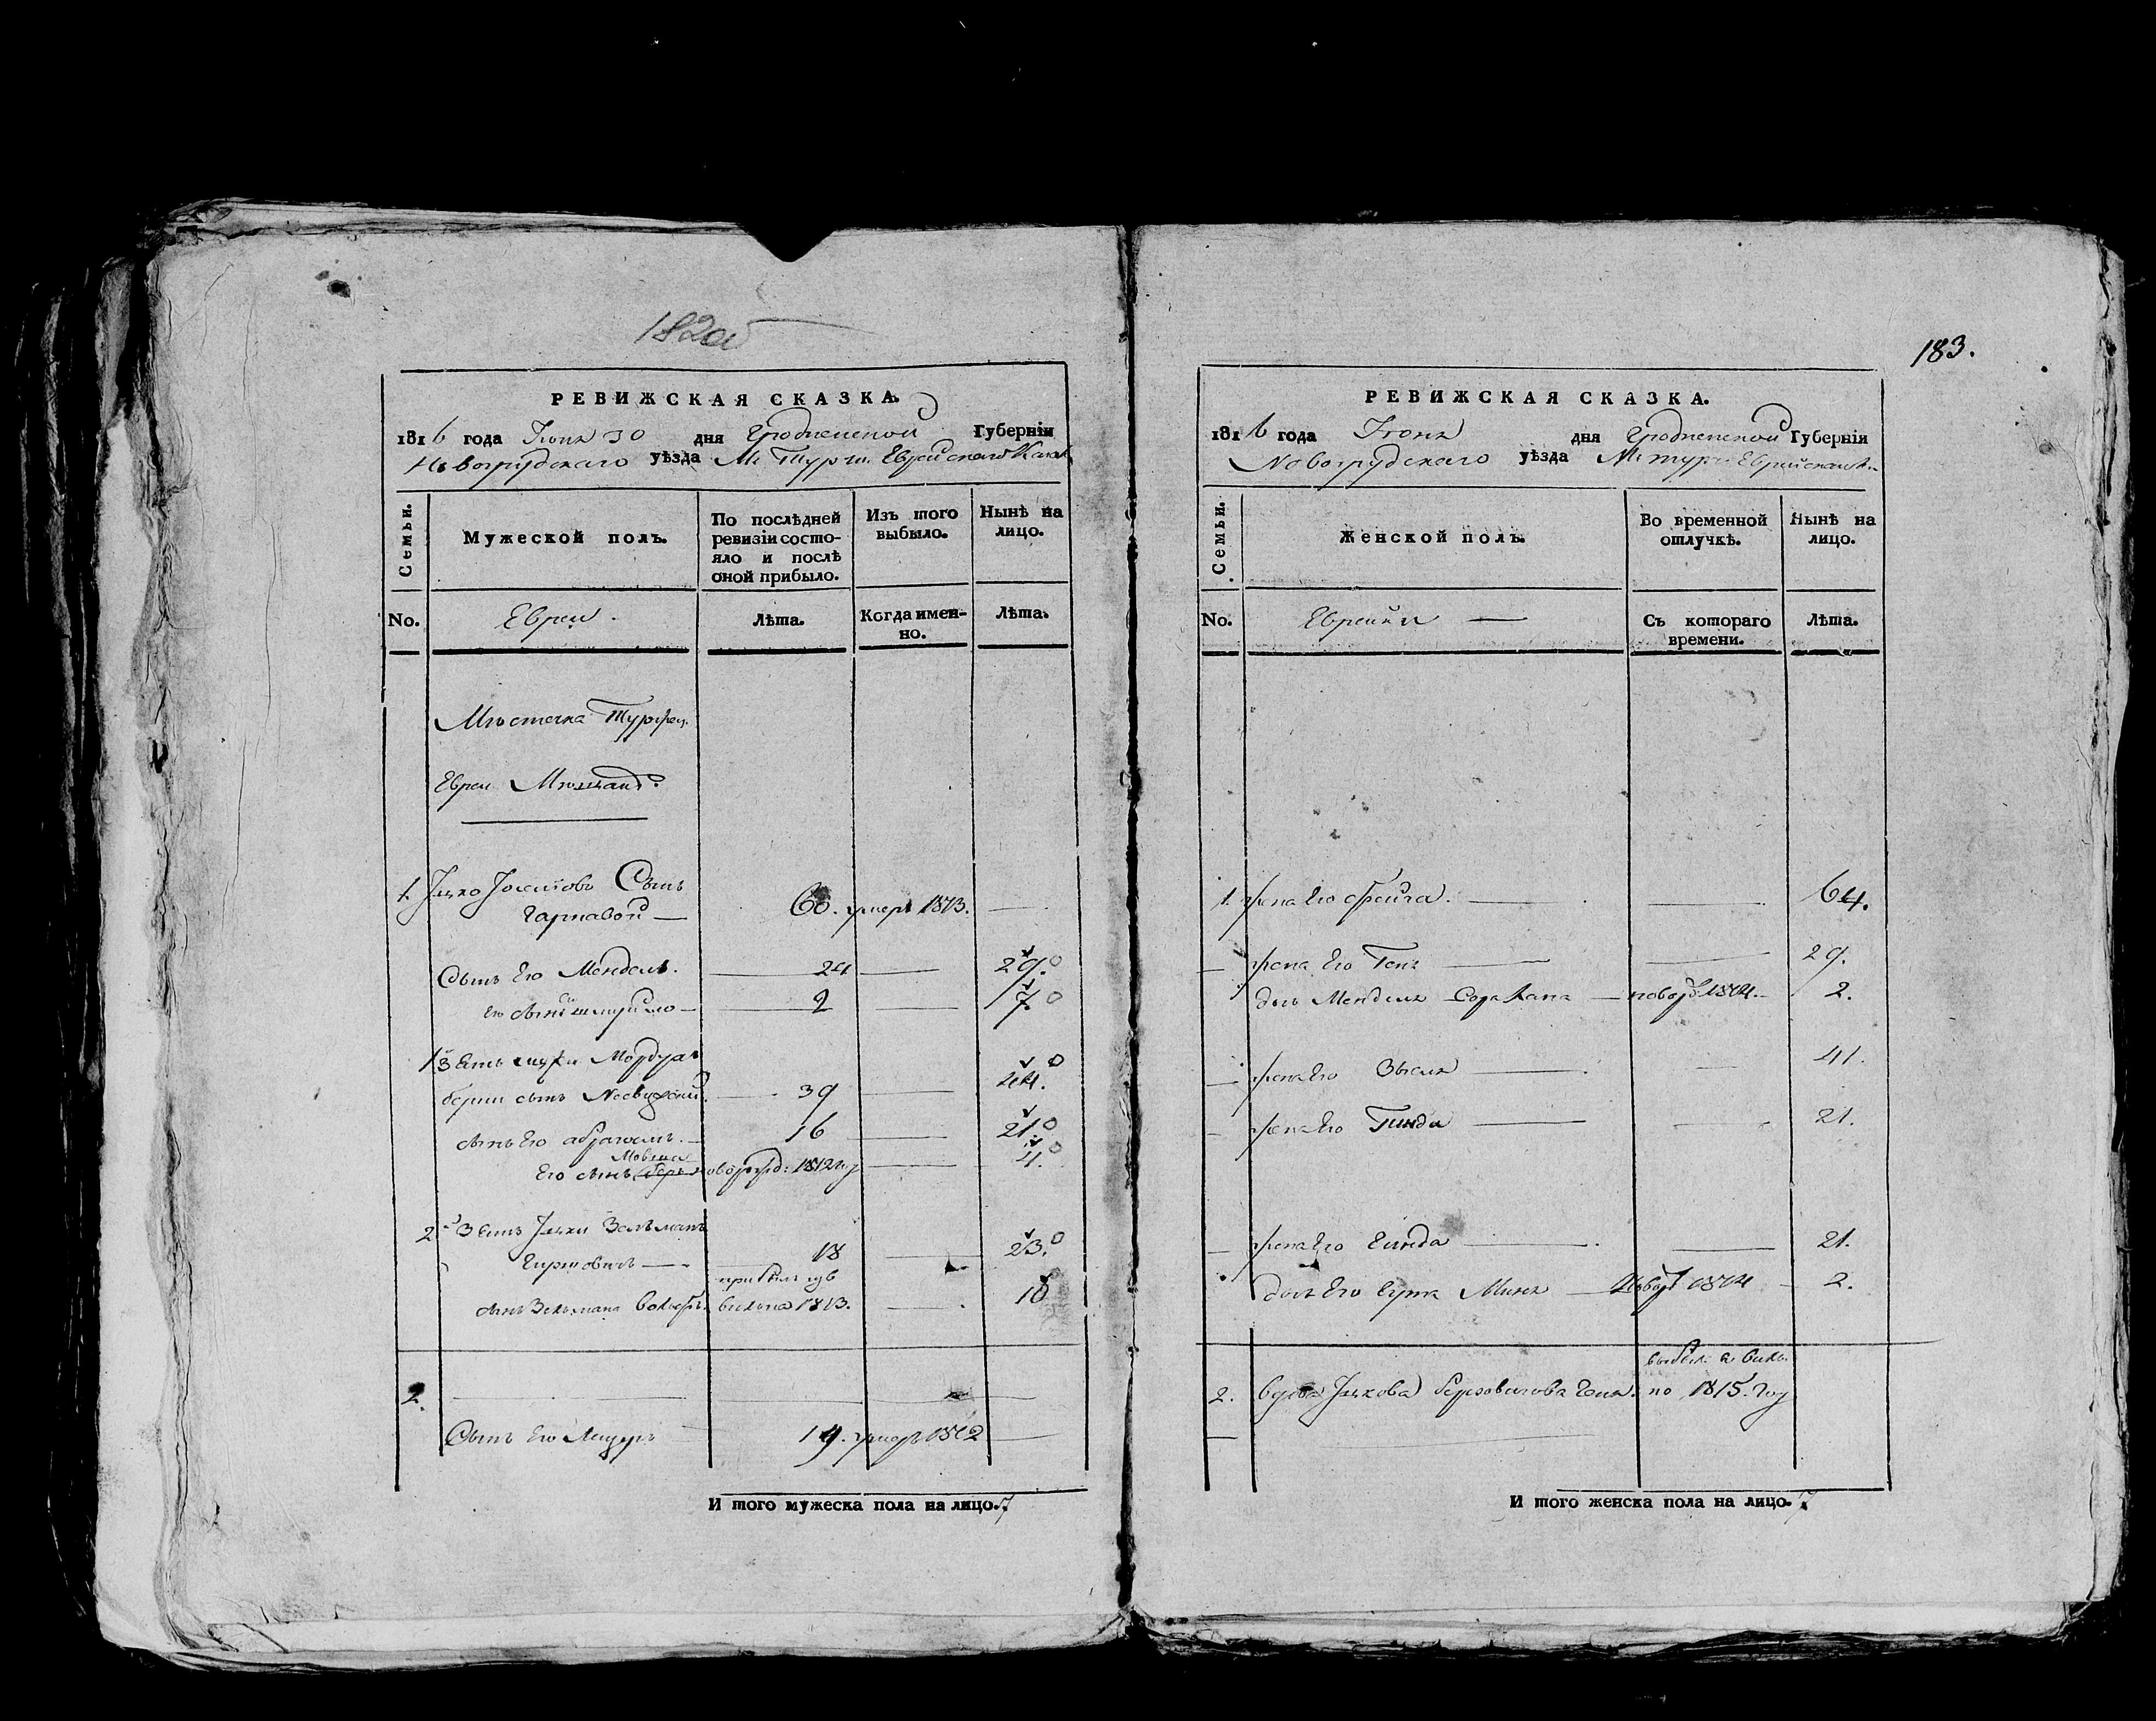 182об
РЕВИЖСКАЯ СКАЗКА.
1816 года Іюня 30 дня Гродненской Губерніи
Новогрудскаго уѣзда М: Турца Еврейскаго
Семьи.
Мужеской полъ.
По послѣдней ревизіи состояло и послѣ оной прибыло.
Изъ того выбыло.
Нынѣ на лицо.
No.
Евреи.
Лѣта.
Когда именно.
Лѣта.
Мѣстечка
Евреи Мѣщане
1. Іцко Сынъ
60. умеръ 1813.
Сынъ Его Мендель. 24 29.
Его сынъ 2 7.
1й Зять Ицки Мордух
Берки сынъ 39 44.
сынъ Его Абрагамъ. 16 21
Мовша
Его сынъ новорожд: 1812 4.
2й Зять Іцки Зельманъ
Гиршовичъ 18 23.
прибылъ изъ
сынъ Зельмана 1813. 10
2.
Сынъ Его Лейзеръ 14. умеръ 1812
И того мужеска пола на лицо. 7
183.
РЕВИЖСКАЯ СКАЗКА.
1816 года Іюня дня Гродненской Губерніи
Новогрудскаго уѣзда М: Турца Еврейскаго
Семьи.
Женской полъ.
Во временной отлучкѣ.
Нынѣ на лицо.
No.
Еврейки
Съ котораго времени.
Лѣта.
1. жена Его Фейга. 64.
жена Его Геня 29.
дочь Менделя Сора Хана новорож 1814. 2.
жена Его Зысля 41.
жена Его Гинда 21.
жена Его Гинда 21.
дочь Его Мина новор 1814 2.
2. вдова Іцкова 1815. году
И того женска пола на лицо. 7